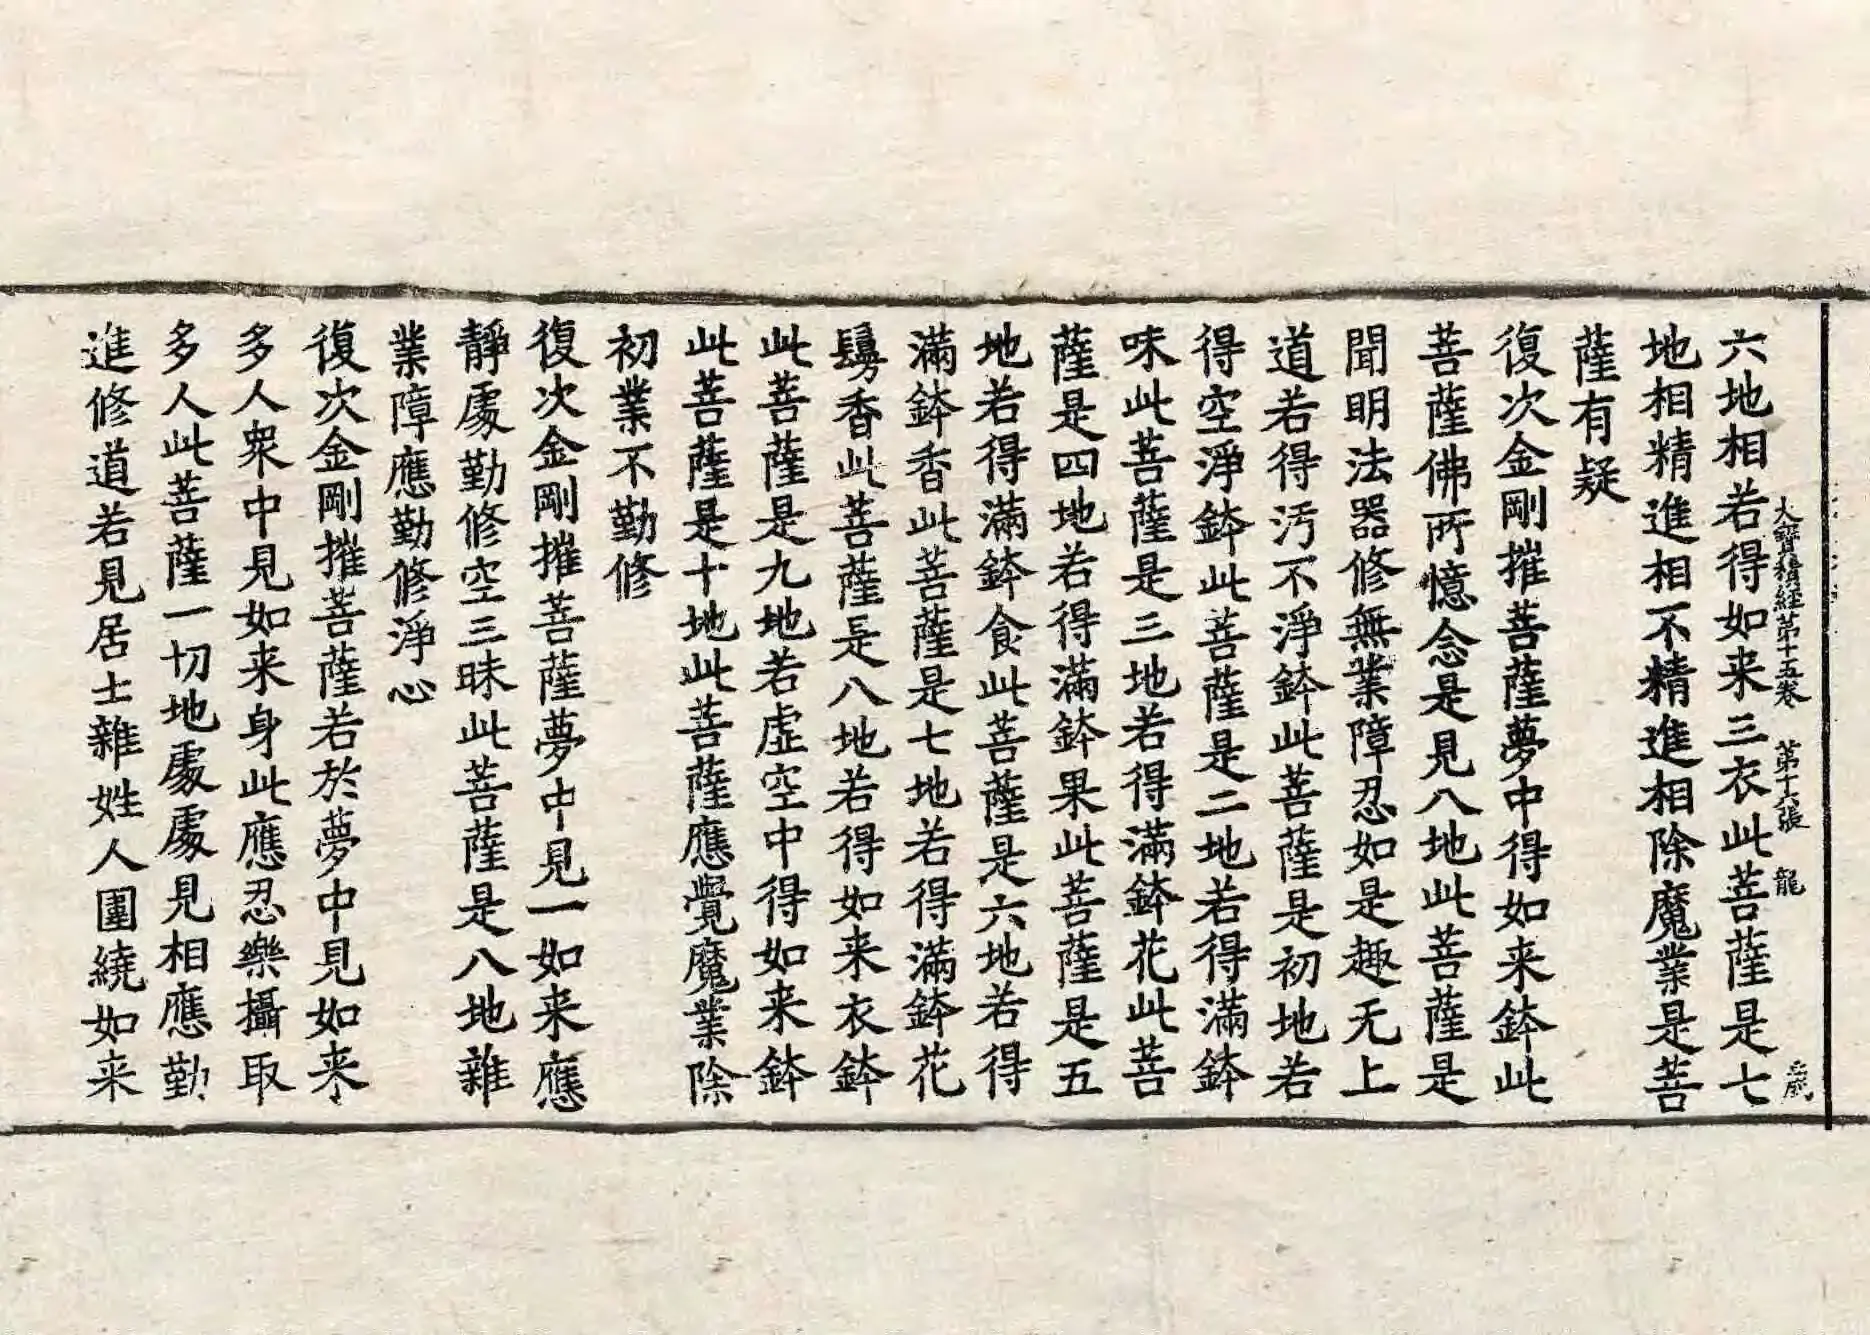 大寶積經第十五卷 第十六張 龍
六地相若得如来三衣此菩薩是七
地相精進相不精進相除魔業是菩
薩有疑
復次金剛摧菩薩夢中得如来鉢此
菩薩佛所憶念是見八地此菩薩是
聞明法器修無業障忍如是趣无上
道若得汚不淨鉢此菩薩是初地若
得空淨鉢此菩薩是二地若得滿鉢
味此菩薩是三地若得滿鉢花此菩
薩是四地若得滿鉢果此菩薩是五
地若得滿鉢食此菩薩是六地若得
滿鉢香此菩薩是七地若得滿鉢花
鬘香此菩薩是八地若得如来衣鉢
此菩薩是九地若虛空中得如来鉢
此菩薩是十地此菩薩應覺魔業除
初業不勤修
復次金剛摧菩薩夢中見一如来應
靜處勤修空三昧此菩薩是八地雜
業障應勤修淨心
復次金剛摧菩薩若於夢中見如来
多人衆中見如来身此應忍樂攝取
多人此菩薩一切地處處見相應勤
進修道若見居士雜姓人圍繞如来